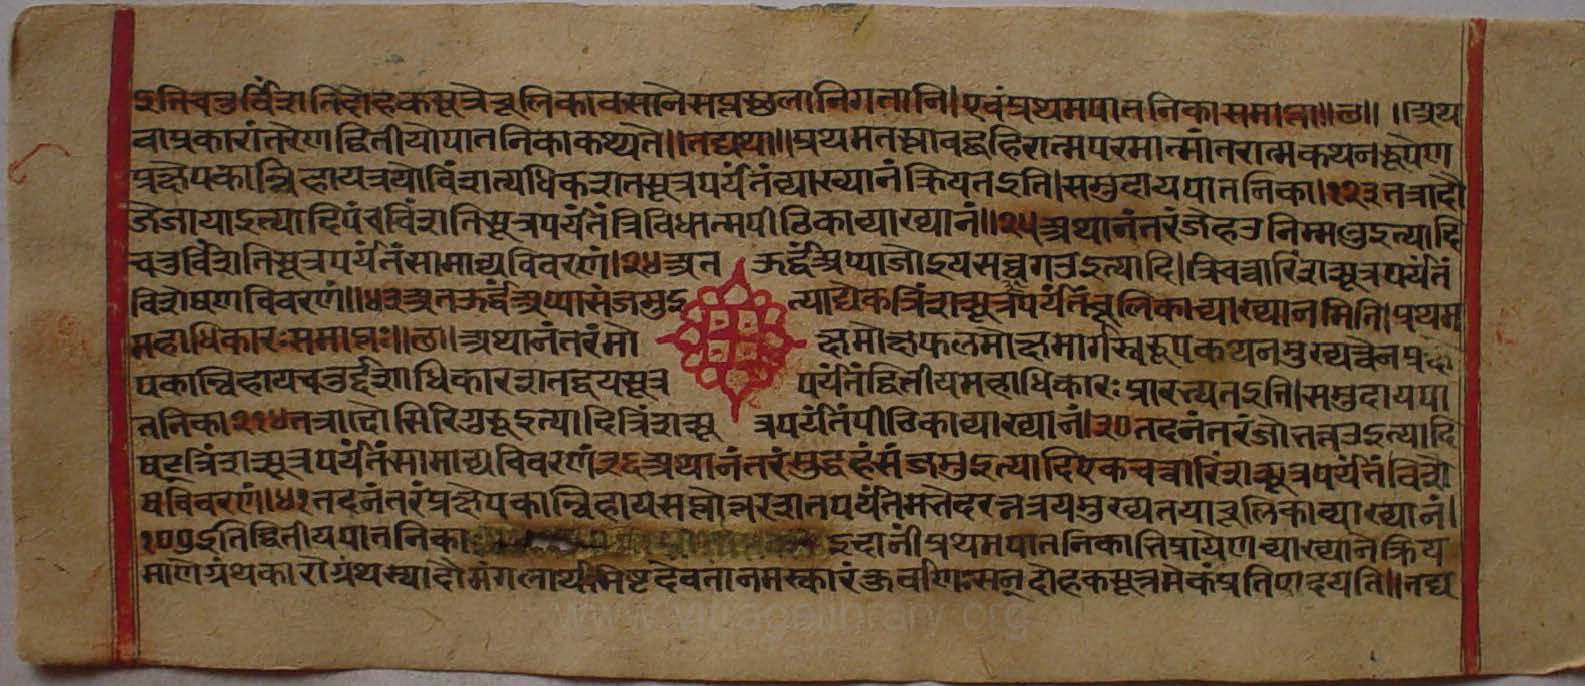 इतिचतुर्विंशतिदोहकसूत्रैश्चूलिकावसानेसप्तस्थलानिगतानि।एवंप्रथमपातनिकासमाप्ता॥छ॥ ।अथ
वाप्रकारांतरेणद्वितीयापातनिकाकथ्यते॥तद्यथा॥प्रथमतस्तावद्बहिरात्मपरमात्मांतरात्मकथनरूपेण
प्रक्षेपकान्विहायत्रयोविंशत्यधिकशतसूत्रपर्यंतंव्याख्यानंक्रियतइति।समुदायपातनिका।१२३तत्रादौ
जेजायाइत्यादिपंचविंशतिसूत्रपर्यंतंत्रिविधात्मपीठिकाव्याख्यानं॥२५अथानंतरंजेहउनिम्मलुइत्यादि
चतुर्विंशतिसूत्रपर्यंतंसामान्यविवरणं।२४अत ऊर्द्वंअप्पाजोइयसव्वगउइत्यादि।त्रिचत्वारिंशत्सूत्रपर्यंतं
विशेषणविवरणं॥४३अतऊर्द्वंअप्पासंजमुइ त्याद्येकत्रिंशत्सूत्रपर्यंतंचूलिकाव्याख्यानमिति।प्रथम
महाधिकारःसमाप्तः॥छ॥अथानंतरंमो क्षमोक्षफलमोक्षमार्गस्वरूपकथनमुख्यत्वेनप्रक्षे
पकान्विहायचतुर्द्दशाधिकारशतद्वयसूत्र पर्यंतंद्वितीयमहाधिकारःप्रारभ्यतइति।समुदायपा
तनिका२१४तत्रादौसिरिगुरुइत्यादित्रिंशत्सू त्रपर्यंतंपीठिकाव्याख्यानं।३०तदनंतरंजोभत्तउइत्यादि
षट्त्रिंशत्सूत्रपर्यंतंसामान्यविवरणं३६अथानंतरंसुद्धहंसंजमुइत्यादिएकचत्वारिंशत्सूत्रपर्यंतंविशे
षविवरणं।४१तदनंतरंप्रक्षेपकान्विहायसप्तोत्तरशतपर्यंतंअभेदरत्नत्रयमुख्यतयाचूलिकाव्याख्यानं।
१०७इतिद्वितीयपातनिका इदानींप्रथमपातनिकाभिप्रायेणव्याख्यानेक्रिय
माणेग्रंथकारोग्रंथस्यादौमंगलार्थमिष्टदेवतानमस्कारंकुर्वाणःसन्दोहकसूत्रमेकंप्रतिपादयति॥तद्य